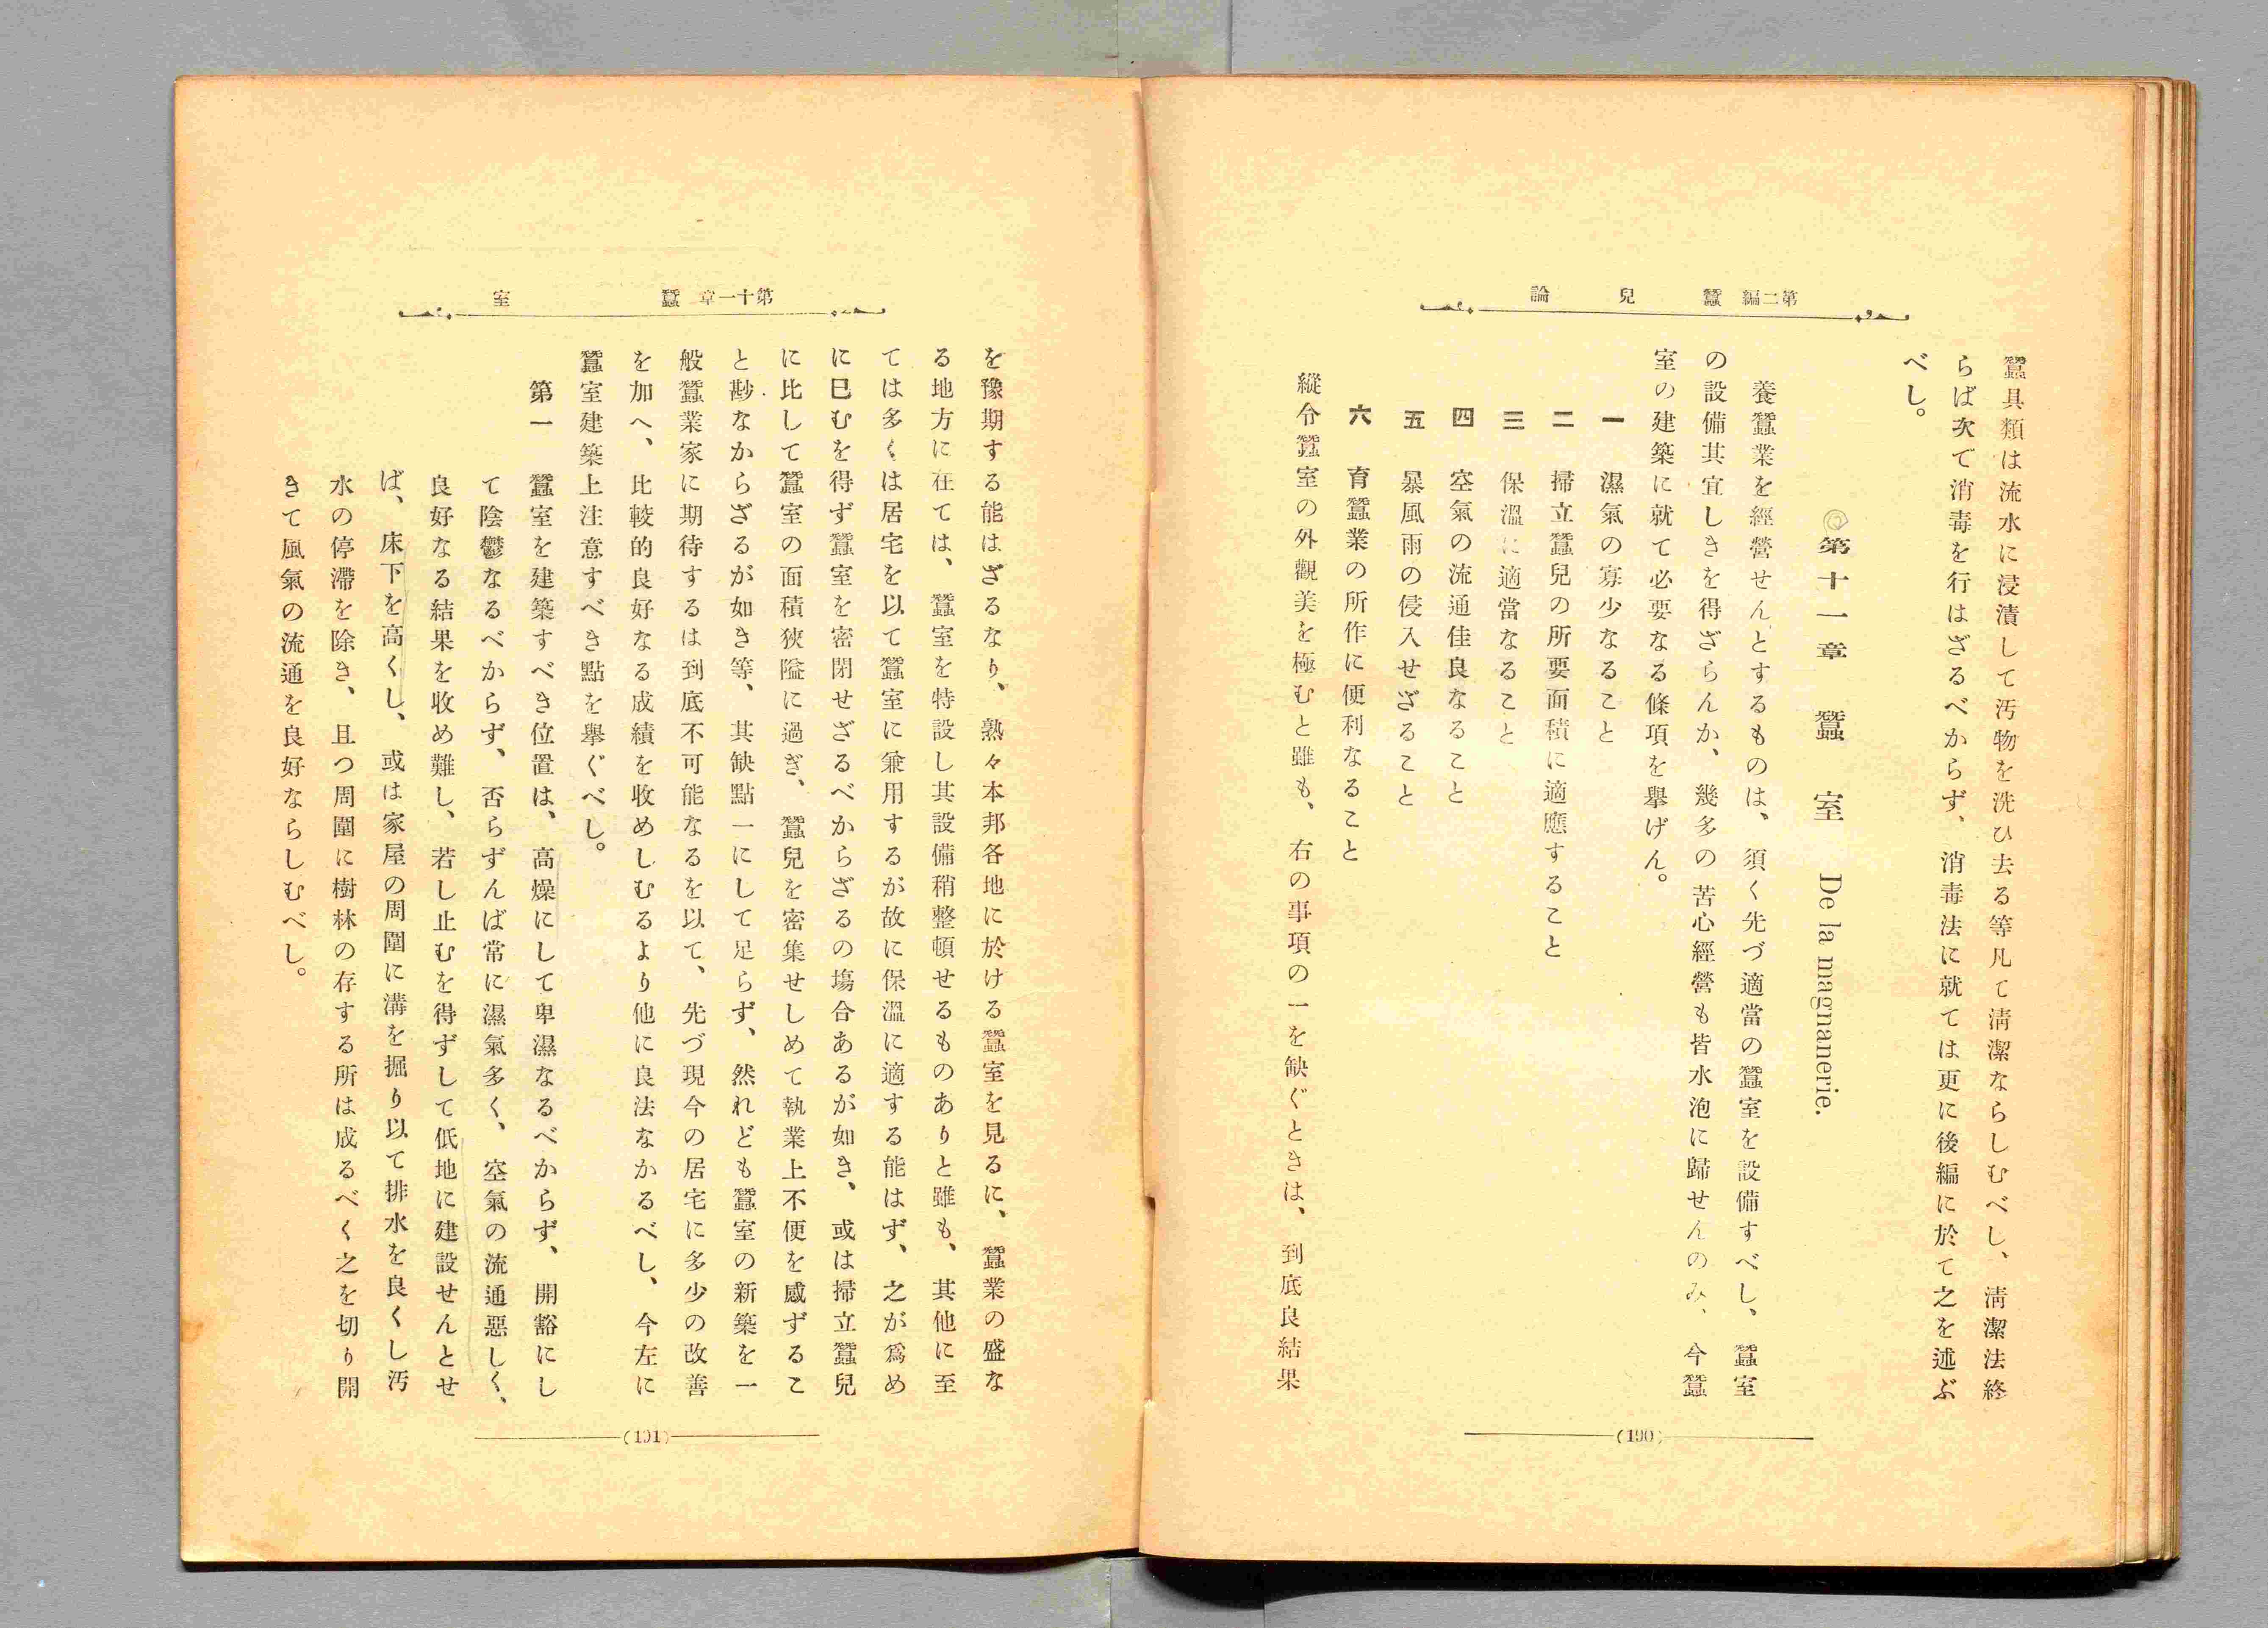 第二編　蠶兒論
蠶具類は流水に浸漬して汚物を洗ひ去る等凡て淸潔ならしむべし、淸潔法終
らば次で消毒を行はざるべからず、消毒法に就ては更に後編に於て之を述ぶ
べし。
◎第十一章　蠶室　De la magnanerie.
養蠶業を經營せんとするものは、須く先づ適當の蠶室を設備すべし、蠶室
の設備其宜しきを得ざらんか、幾多の苦心經營も皆水泡に歸せんのみ、今蠶
室の建築に就て必要なる條項を擧げん。
一　濕氣の寡少なること
二　掃立蠶兒の所要面積に適應すること
三　保溫に適當なること
四　空氣の流通佳良なること
五　暴風雨の侵入せざること
六　育蠶業の所作に便利なること
縱令蠶室の外觀美を極むと雖も、右の事項の一を缺ぐときは、到底良結果
(190)
第十一章　蠶室
を豫期する能はざるなり、熟々本邦各地に於ける蠶室を見るに、蠶業の盛な
る地方に在ては、蠶室を特設し其設備稍整頓せるものありと雖も、其他に至
ては多くは居宅を以て蠶室に兼用するが故に保溫に適する能はず、之が爲め
に巳むを得ず蠶室を密閉せざるべからざるの塲合あるが如き、或は掃立蠶兒
に比して蠶室の面積狹隘に過ぎ、蠶兒を密集せしめて執業上不便を感ずるこ
と尠なからざるが如き等、其缺點一にして足らず、然れども蠶室の新築を一
般蠶業家に期待するは到底不可能なるを以て、先づ現今の居宅に多少の改善
を加へ、比較的良好なる成績を收めしむるより他に良法なかるべし、今左に
蠶室建築上注意すべき點を擧ぐべし。
第一　蠶室を建築すべき位置は、高燥にして卑濕なるべからず、開豁にし
て陰鬱なるべからず、否らずんば常に濕氣多く、空氣の流通惡しく、
良好なる結果を收め難し、若し止むを得ずして低地に建設せんとせ
ば、床下を高くし、或は家屋の周圍に溝を掘り以て排水を良くし汚
水の停滯を除き、且つ周圍に樹林の存する所は成るべく之を切り開
きて風氣の流通を良好ならしむべし。
(191)